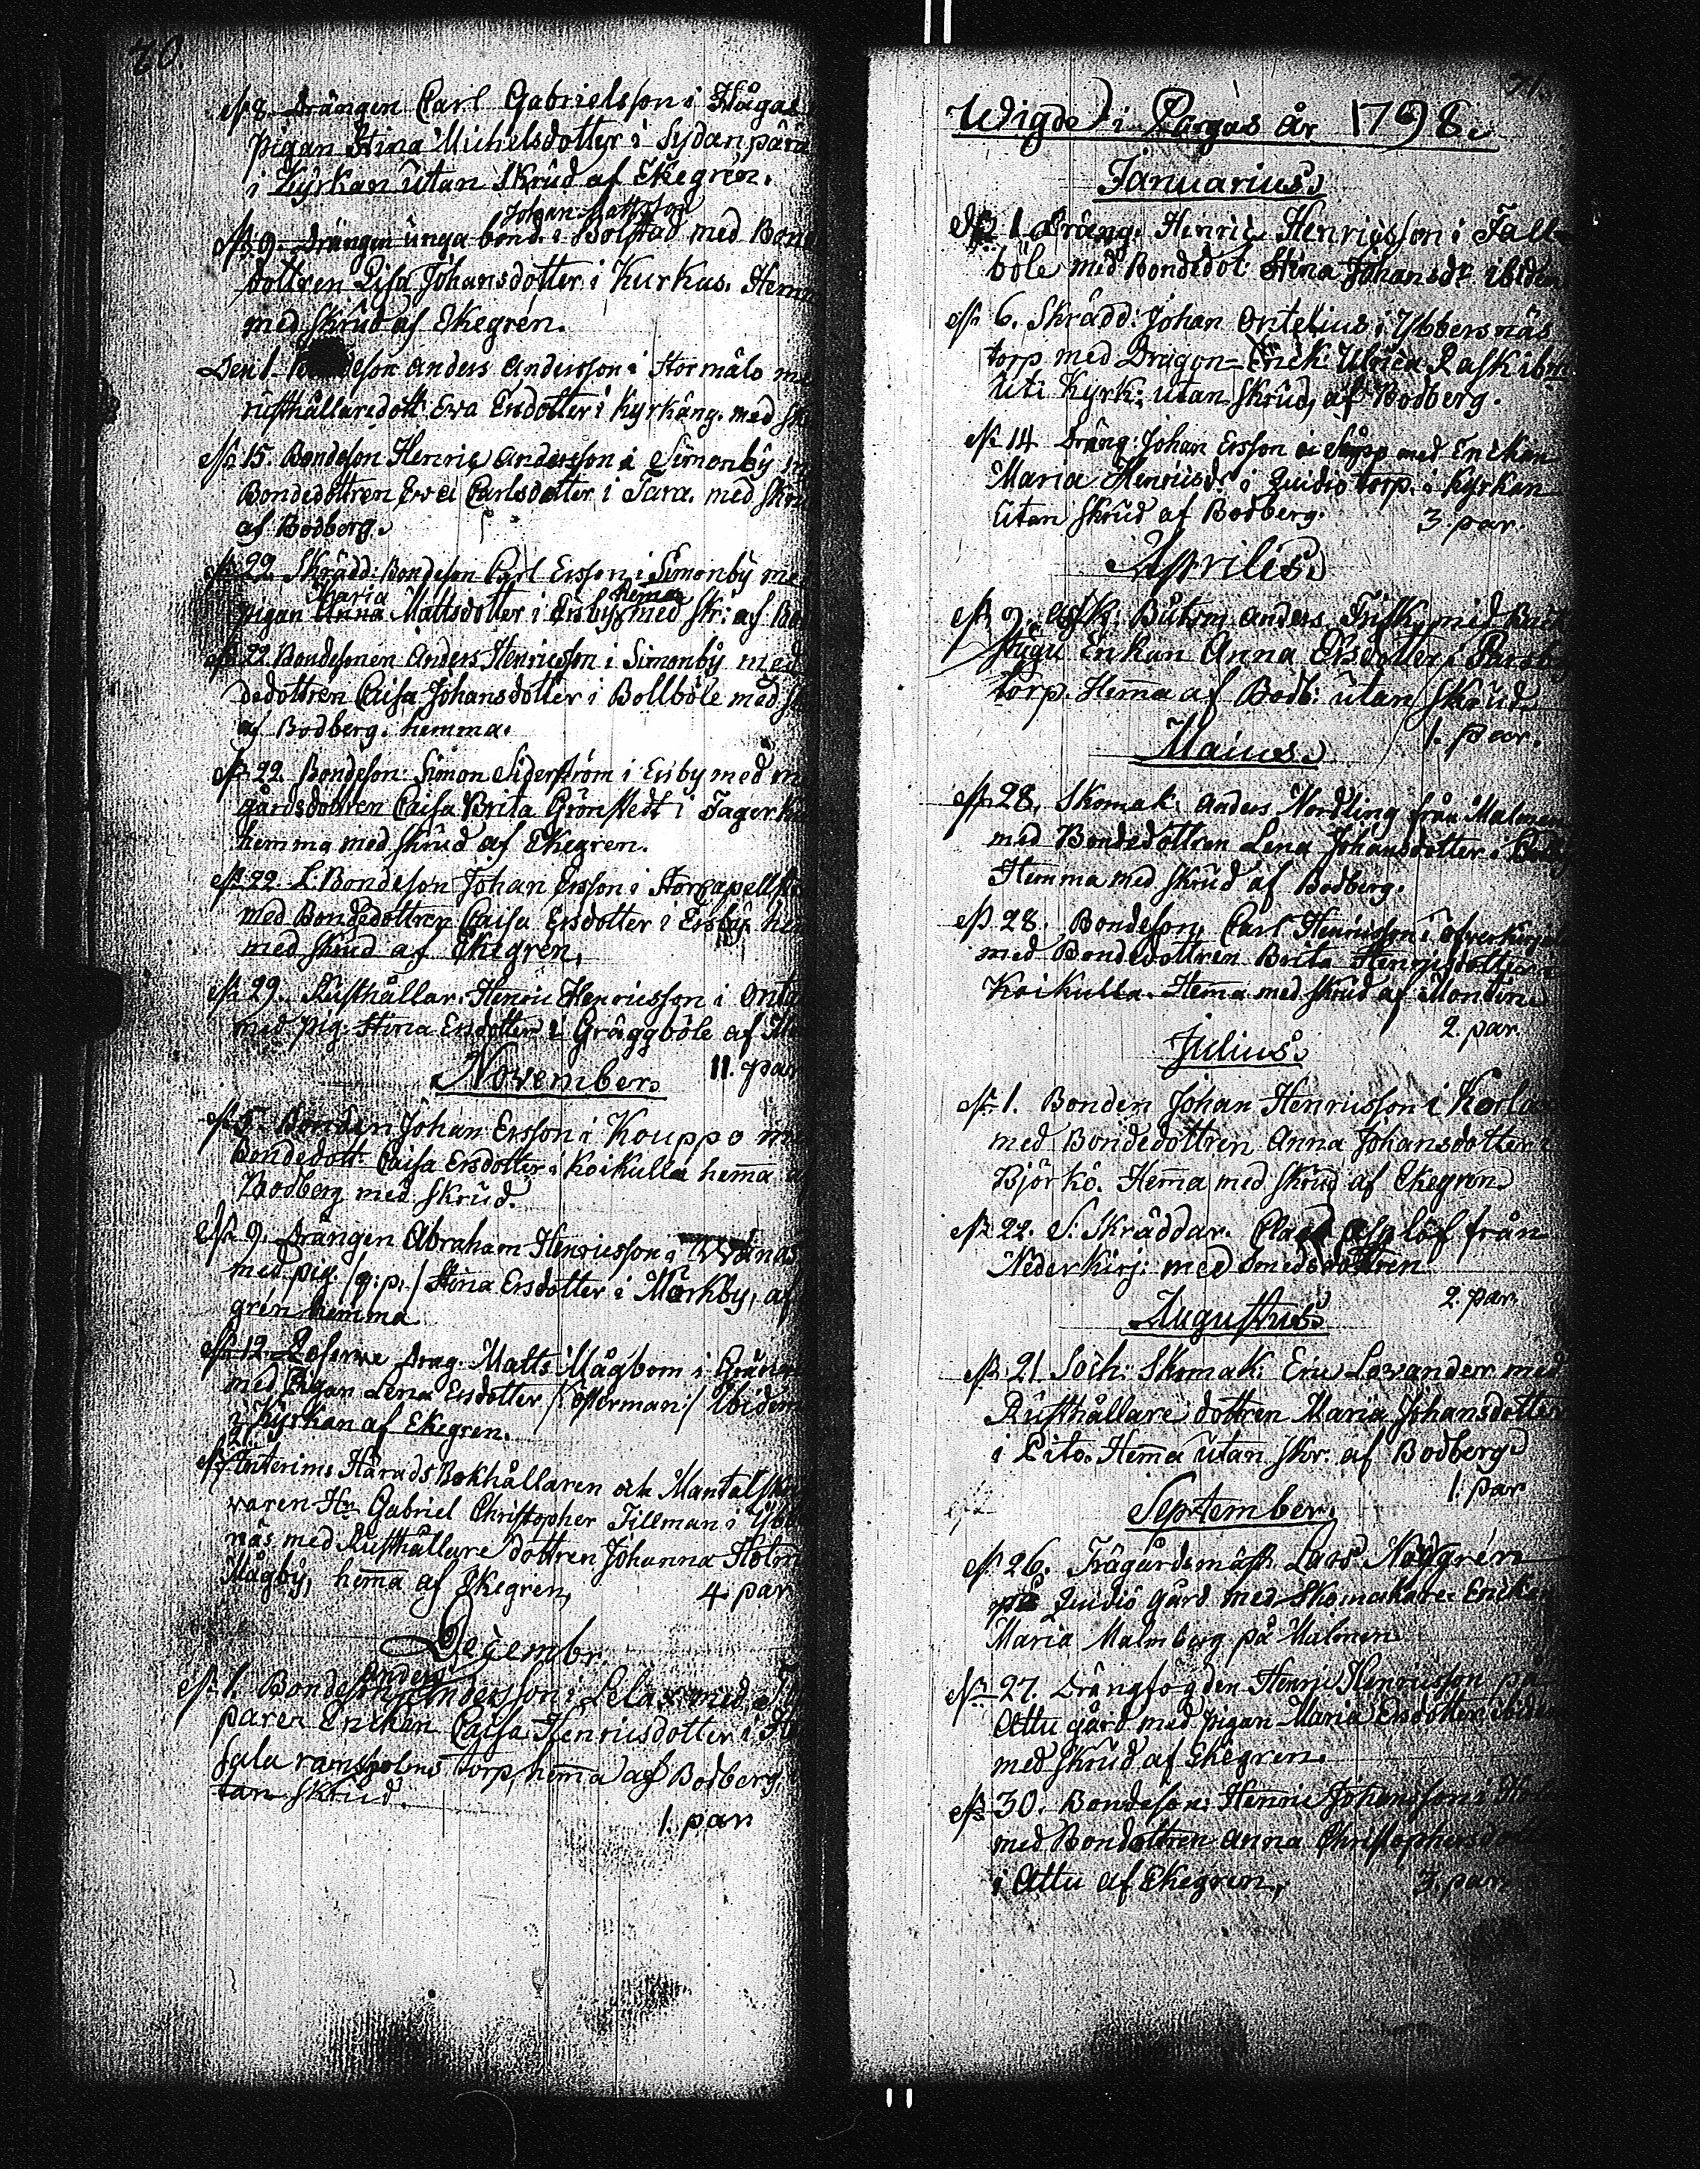 70.
d. 8. Drängen Carl Gabrielsson i Hågas
pigan Stina Michelsdotter i Sydanpärä
i Kyrkan utan Skrud af Ekegrén.
Johan Mattsson
d. 9. Drängen unga bond. i Bolstad med Bond
dottren Lisa Johansdotter i Kurkas. Hem
med skrud af Ekegrén.
Den 1. Bondeson Anders Andersson i Stormälo me
rusthållaredott: Ewa Ersdotter i Kyrkäng. med sk
d. 15. Bondeson Henric Andersson i Simonby m
Bondedottren Ewa Carlsdotter i Tara. med skru
af Bodberg.
d. 22. Skrädd: Bondeson Carl Ersson i Simonby me
Maria hemma
pigan Anna Mattsdotter i Ersby med skr: af Bo
d. 22. Bondesonen Anders Henricsson i Simonby med
dedottren Caisa Johansdotter i Bollböle med s
af Bodberg. hemma.
d. 22. Bondeson: Simon Siderström i Ersby med m
gårdsdottren Caisa Brita Grönstedt i Tagerku
hemma med skrud af Ekegren.
d. 22. L. Bondeson Johan Ersson i Storgapellst
med Bondedottren Caisa Ersdotter i Ersby hem
med skrud af Ekegren,
d. 29. Rusthållar: Henric Henricsson i Onta
med pig. Stina Ersdotter i Gräggböle af
11. par
November.
d. 5. Bonden Johan Ersson i Kouppo me
Bondedott: Caisa Ersdotter i Koikulla hem̄a a
Bodberg med skrud.
d. 9. Drängen Abraham Henricsson i
med pig. /q:p:/ Stina Ersdotter i Mörkby, af
grén hemma
d. 12. Reserve Drag. Matts Mågbom i Grän
med Pigan Lena Ersdotter /:Österman:/ Ibidem
i Kyrkan af Ekegren.
d. Interims Härads Bokhållaren och Mantalskri
waren Hr Gabriel Christopher Tillman i Ybb
näs med Rusthållare dottren Johanna Holm
Mågby, hem̄a af Ekegren,
4 par
Decembr.
Anders
d. 1. Bondeson Andersson i Lelax med T
paren Enckan Caisa Henricsdotter i
sala ramsholms torp, hem̄a af Bodberg,
tan skrud.
1. par
71.
Wigde i Pargas år 1798.
Januarius.
d. 1. Dräng. Henric Henricsson i Fall
böle med Bondedot: Stina Johansdr. ibidem
d. 6. Skrädd: Johan Ontelius i Ybbersnäs
torp med Dragon-Enck: Ulrica Rask ibm
uti Kyrk: utan skrud, af Bodberg.
d. 14 Dräng: Johan Ersson i med Enckan
Maria Henricsdr i Quidio torp. i Kyrkan
utan skrud af Bodberg.
3. par.
Aprilis.
d. 2. Båtsm. Anders Frisk med
stugu Enkan Anna Ersdotter i
torp. Hem̄a af Bodb: utan skrud.
1. par.
Maius.
d. 28. Skomak: Anders Nordling från Malmen
med Bondedottren Lena Johansdotter i
Hemma med skrud af Bodberg.
d. 28. Bondeson, Carl Henricsson i Öfverkirja
med Bondedottren Brita Henricsdotter
Koikulla. Hem̄a med skrud af Montin.
2. par.
Julius.
d. 1. Bonden Johan Henricsson i Korla
med Bondedottren Anna Johansdotter i
Björkö. Hem̄a med skrud af Ekegren.
d. 22. S. Skräddar. löf från
Nederkirj: med Smedsdottren
2. par.
Augustus.
d. 21 Soch: Skomak: Eric Lovander med
Rusthållare dottren Maria Johansdotter
i Pito. Hem̄a utan skr. af Bodberg
1. par
September.
d. 26. Trägårdsmäst. Lars Nordgrén
på Quidio gård med Skomakare Encken
Maria Malmberg på Malmen
d. 27. Drängfogden Henric Henricsson på
Attu gård med pigan Maria Ersdotter ibidem
med skrud af Ekegren.
d. 30. Bondeson: Henric Johansson i
med Bondottren Anna Christophersdott
i Attu af Ekegren,
3. par.